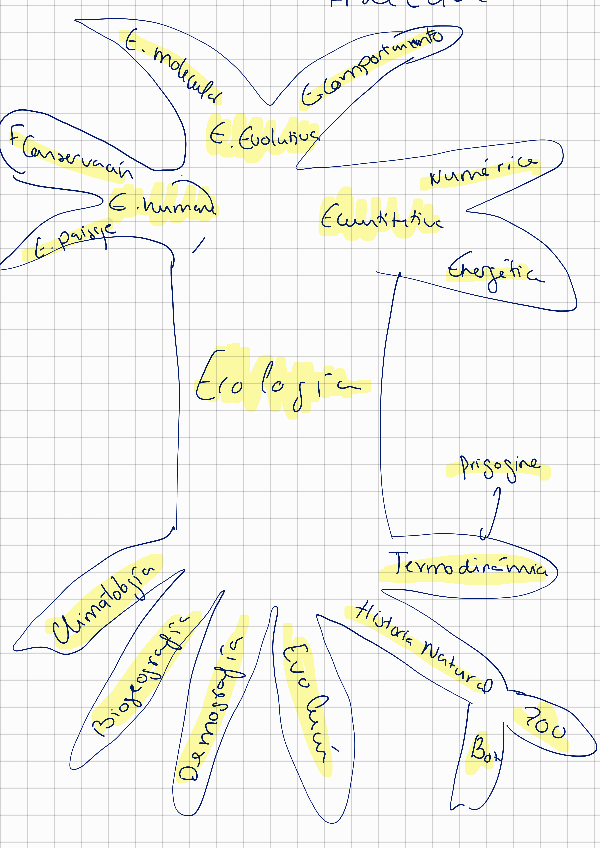 E. molecular
E comportimiento
E. Evolutiva
F Conservación
Numérica
E. humana
Ecuntitativa
E. paisaje
Energética
Ecología
Prigogine
Termodinámica
Climatología
Historia Natural
Biogeografía
Demografía
Evolución
Zoo
Bot